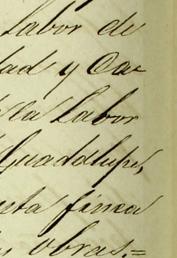 Labor de
dad y Oa=
la Labor
Guadalupe,
esta finca
obras.=